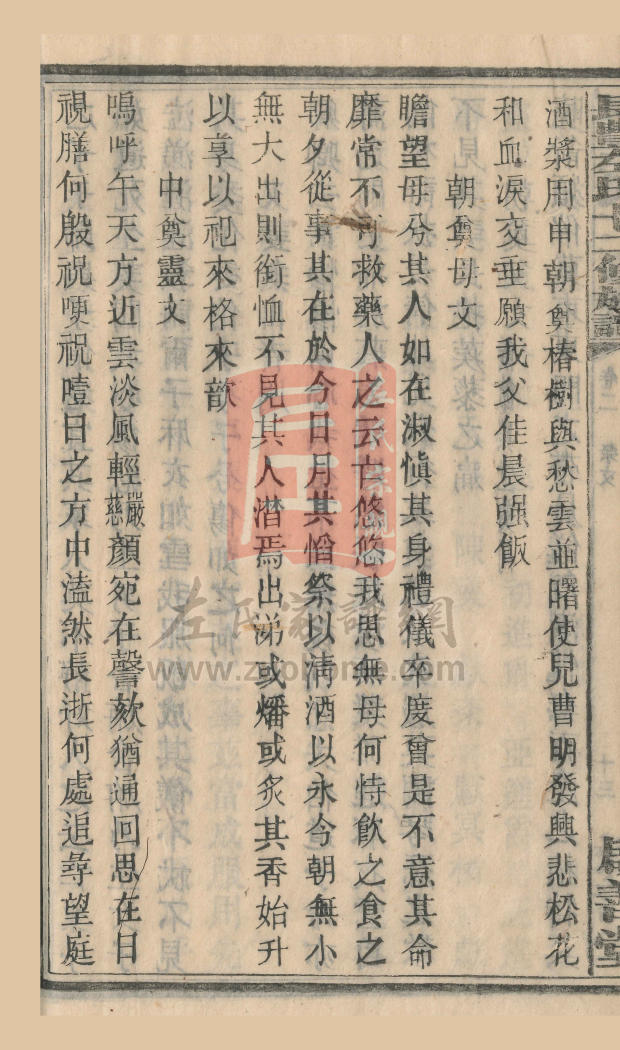 左氏十二修族譜 卷二 祭文 十三
酒漿用申朝奠椿樹與愁雲並曙使兒曹明發興悲松花
和血淚交垂願我父佳晨强飯
朝奠母文
瞻望母兮其人如在淑愼其身禮儀卒度曾是不意其命
靡常不可救藥人之云亡悠悠我思無母何恃飲之食之
朝夕從事其在於今日月其慆祭以清酒以永今朝無小
無大出則銜恤不見其人潸焉出涕或燔或炙其香始升
以享以祀來格來歆
中奠靈文
嗚呼午天方近雲淡風輕嚴慈顏宛在謦欬猶通回思在日
視膳何殷祝哽祝噎日之方中溘然長逝何處追尋望庭
左氏家譜網
www.zuojiahome.com